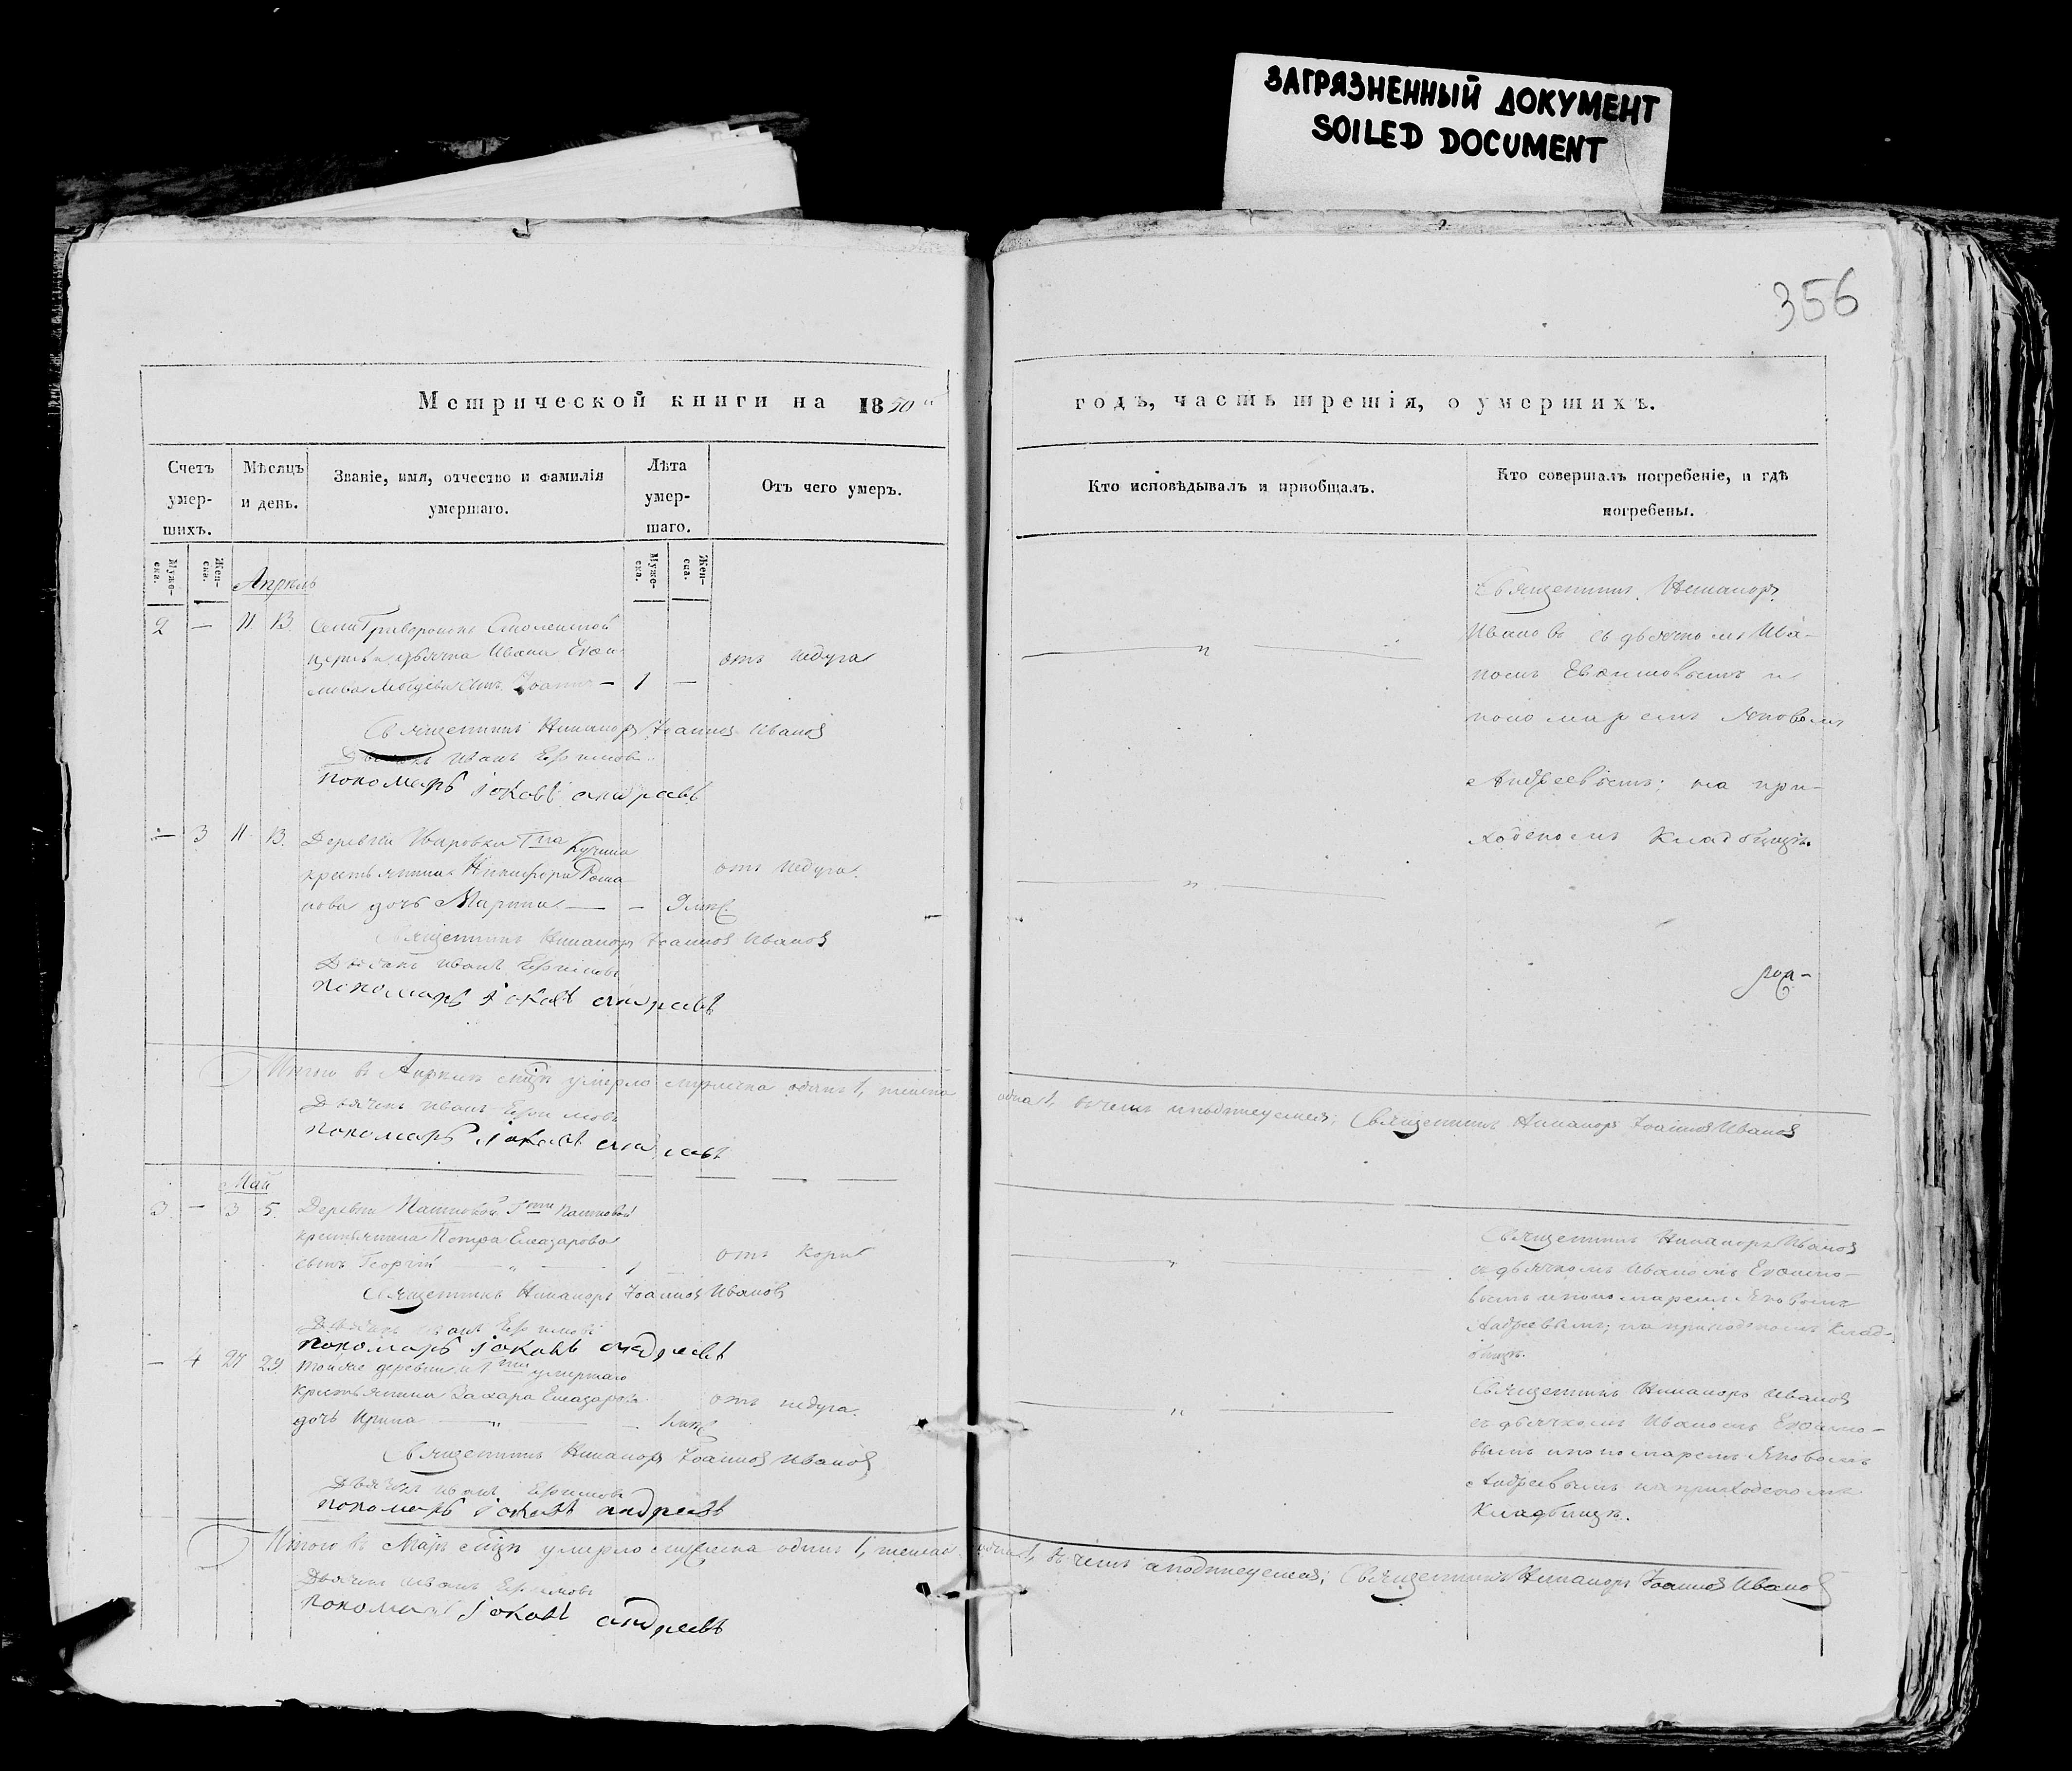 ЗАГРЯЗНЕННЫЙ ДОКУМЕНТ
SOILED DOCUMENT
356
Метрической книги на 1850й
годъ, часть третія, о умершихъ.
Счетъ умер-шихъ.
Мѣсяцъ и день.
Званіе, имя, отчество и фамилія умершаго.
Лѣта умер-шаго.
Отъ чего умеръ.
Кто исповѣдывалъ и пріобщалъ.
Кто совершалъ погребеніе, и гдѣ погребены.
Муже-ска.
Жен-ска.
Муже-ска.
Жен-ска.
Апрѣль
2 — 11 13 Смоленской
церкви дьячка Ивана
сынъ 1 — отъ недуга
Священникъ Никаноръ Іоанновъ Ивановъ
Дьячекъ Иванъ Ефимовъ
пономарь іаковъ андреевъ
Священникъ Никаноръ
Ивановъ съ дьячкомъ Ива-
номъ Евѳимовымъ и
пономаремъ Яковомъ
Андреевымъ; на при-
ходскомъ Кладбищѣ.
— 3 11 13. Деревни
крестьянина Никифора Рома
нова дочь — — отъ недуга.
Священникъ Никаноръ Іоанновъ Ивановъ
Дьячекъ иванъ Ефимовъ
пономарь іаковъ андреевъ
Итого въ Апрѣлѣ умерло мужеска одинъ 1, женска
одна 1, въ чемъ и подписуемся; Священникъ Никаноръ Іоанновъ Ивановъ
Дьячекъ иванъ Ефимовъ
пономарь іаковъ андреевъ
Май
3 — 3 5. Деревни
крестьянина Петра Елеазарова
сынъ Георгій — 1 — отъ Кори
Священникъ Никаноръ Іоанновъ Ивановъ
Дьячекъ иванъ Ефимовъ
пономарь іаковъ андреевъ
Священникъ Никаноръ Ивановъ
съ дьячкомъ Иваномъ Евѳимо-
вымъ и пономаремъ Яковомъ
Андреевымъ; на приходскомъ Клад-
бищѣ.
— 4 27 29. Той же деревни умершаго
крестьянина Захара Елеазарова
дочь Ирина — отъ недуга.
Священникъ Никаноръ Іоанновъ Ивановъ
Дьячекъ иванъ Ефимовъ
пономарь іаковъ андреевъ
Священникъ Никаноръ Ивановъ
съ дьячкомъ Иваномъ Евѳимо-
вымъ и пономаремъ Яковомъ
Андреевымъ на приходскомъ
Кладбищѣ.
Итого въ Маѣ умерло мужеска одинъ 1, женска
одна 1, въ чемъ и подписуемся; Священникъ Никаноръ Іоанновъ Ивановъ
Дьячекъ иванъ Ефимовъ
пономарь іаковъ андреевъ